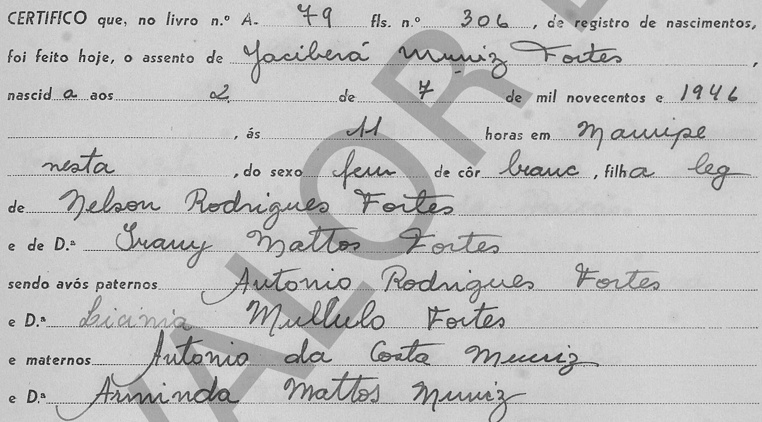 CERTIFICO que, no livro n.º A- 79 fls. n.º 306, de registro de nascimentos,
foi feito hoje, o assento de Jaciberá Muniz Fortes,
nascid a aos 2 de 7 de mil novecentos e 1946
, ás 11 horas em
nesta, do sexo fem de côr branc, filha leg
de Nelson Rodrigues Fortes
e de D.ª Irany Mattos Fortes
sendo avós paternos Antonio Rodrigues Fortes
e D.ª Licinia Mullulo Fortes
e maternos Antonio da Costa Muniz
e D.ª Arminda Mattos Muniz
VALOR